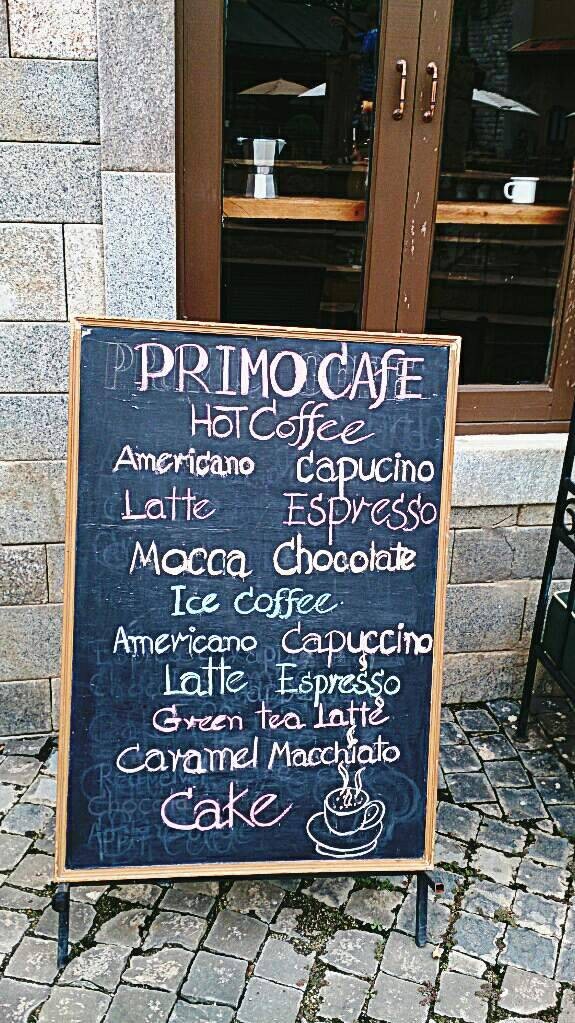 PRIMO CAfE
HOT Coffee
Americano Capucino
Latte Espresso
Mocca Chocolate
Ice coffee
Americano Capuccino
Latte Espresso
Green tea Latte
Caramel Macchiato
Cake